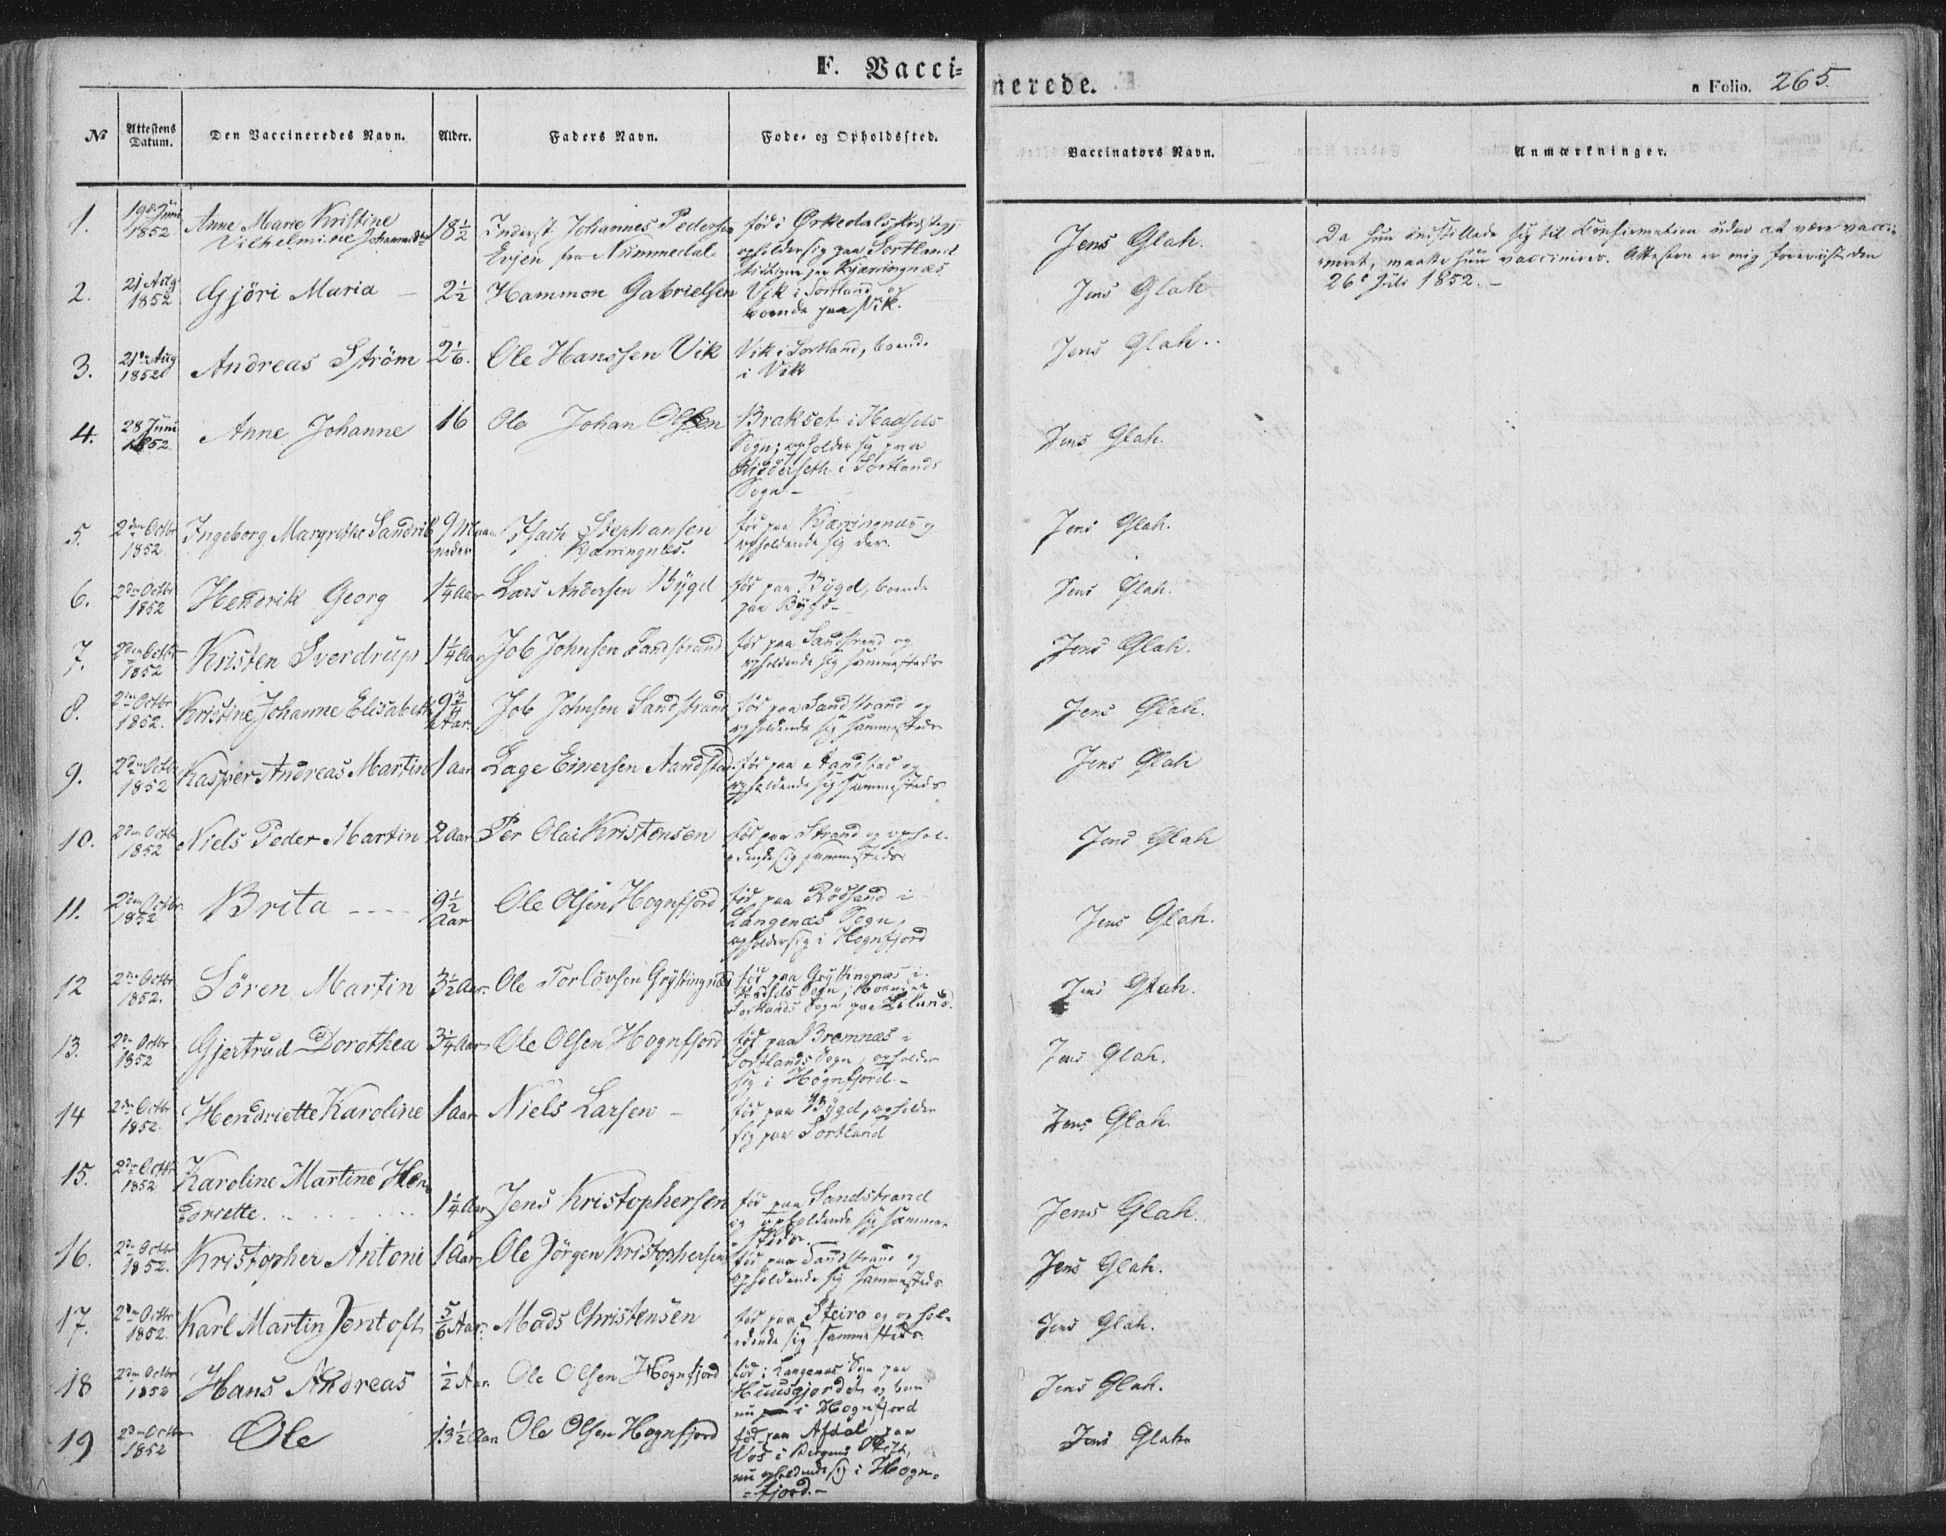 F. Vacci=
nerede.
a Folio. 265.
№ Attestens Datum. Den Vaccineredes Navn. Alder. Faders Navn. Føde- og Opholdssted. Vaccinators Navn. Anmærkninger.
1. 19de Juni 1852 Anne Marie Kristine 18½ Inderst Johannes Pedersen fød i Ørkedals Jens Glah. Da hun indstillede sig til Confirmation uden at være vacci-
Vilhelmine Evjen fra Nummedal opholder sig paa Sortland neret, maatte hun vaccineres. Attesten er mig foreviist den
Kjærringnæs 26de Juli 1852.
2. 21 Aug 1852 Gjöri Maria 2½ Hammon Gabrielsen Vik i Sortland og Jens Glah
boende paa Vik.
3. 21de Aug 1852 Andreas Ström 2 1/6. Ole Hanssen Vik Vik i Sortland, boende Jens Glah.
i Vik
4. 28 Juni 1852. Anne Johanne 16 Ole Johan Olsen Brakset i Hadsels Jens Glah.
Sogn; opholder sig paa
i Sortlands
Sogn
5. 2den Octbr 1852. Ingeborg Margrethe Sandrib 9 Maa- Isach Stephansen fød paa Kjærringnæs og Jens Glah.
neder Kjærringnæs. opholdende sig der.
6. 2den Octbr 1852 Hendrik Georg 1¼ Aar Lars Andersen Bÿgd fød paa Bÿgd, boende Jens Glah.
paa Bÿgd
7. 2den Octbr 1852 Kristen Sverdrup 1¼ Aar Job Johnsen Sandstrand fød paa Sandstrand og Jens Glah.
opholdende sig sammesteds
8. 2den Octbr 1852. Kristine Johanne Elisabeth 9¾ Aar. Job Johnsen Sandstrand fød paa Sandstrand og Jens Glah.
opholdende sig sammesteds
9. 2den Octbr 1852 Kasper Andreas Martin 1 aar Lage Einersen Aandstad fød paa Aandstad og Jens Glah
opholdende sig sammesteds
10. 2den Octbr 1852 Niels Peder Martin 2 Aar Per Olai Kristensen fød paa Strand og ophol- Jens Glah
dende sig sammesteds
11. 2den Octbr 1852 Brita 9½ Aar Ole Olsen Hognfjord fød paa Rödsand i Jens Glah.
Langenæs Sogn,
opholder sig i Hognfjord
12 2den Octbr 1852. Sören Martin 3½ Aar. Ole Torlövsen Grÿttingnæs fød paa Grÿttingnæs i Jens Glah.
Hadsels Sogn,
Sortlands Sogn paa
13. 2den Octbr 1852 Gjertrud Dorothea 3¼ Aar Ole Olsen Hognfjord fød paa Bremnæs i Jens Glah.
Sortlands Sogn, opholder
sig i Hognfjord.
14 2den Octbr 1852. Hendriette Karoline 1 aar Niels Larsen fød paa Bÿgd, opholder Jens Glah.
sig paa Sortland
15. 2den Octbr 1852 Karoline Martine Hen-
driette 1¼ Aar Jens Kristophersen fød paa Sandstrand Jens Glah.
og opholdende sig samme-
steds.
16. 2den Octbr 1852. Kristopher Antoni 1 Aar Ole Jörgen Kristophersen fød paa Sandstrand og Jens Glah.
opholdende sig sammesteds
17. 2den Octbr 1852. Karl Martin Jentoft 5/6 Aar. Mads Christensen fød paa Steiro og ophol- Jens Glah.
dende sig sammesteds
18 2den Octbr 1852 Hans Andreas ½ Aar Ole Olsen Hognfjord fød i Langenæs Sogn paa Jens Glah.
Huusgjordet og boer
nu i Hognfjord
19 2den Octbr 1852 Ole 13½ Aar Ole Olsen Hognfjord fød paa Afdal paa Jens Glah
Vos i Bergens Stift,
nu opholdende sig i Hogn-
fjord.